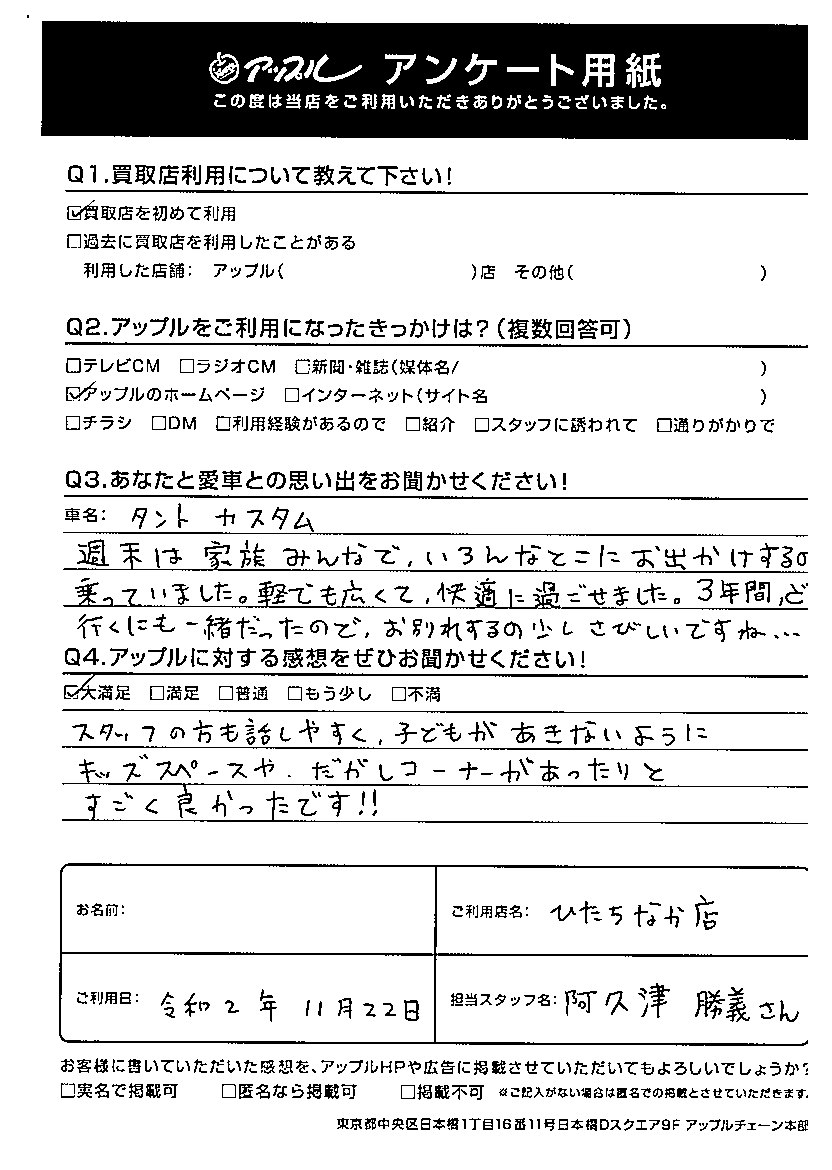 アップル アンケート用紙
この度は当店をご利用いただきありがとうございました。
Q1.買取店利用について教えて下さい!
☑買取店を初めて利用
□過去に買取店を利用したことがある
利用した店舗: アップル( )店 その他( )
Q2.アップルをご利用になったきっかけは?(複数回答可)
□テレビCM □ラジオCM □新聞・雑誌(媒体名/ )
☑アップルのホームページ □インターネット(サイト名 )
□チラシ □DM □利用経験があるので □紹介 □スタッフに誘われて □通りがかりで
Q3.あなたと愛車との思い出をお聞かせください!
車名: タント カスタム
週末は家族みんなで、いろんなとこにお出かけするの
乗っていました。軽でも広くて、快適に過ごせました。3年間、ど
行くにも一緒だったので、お別れするの少しさびしいですね…
Q4.アップルに対する感想をぜひお聞かせください!
☑大満足 □満足 □普通 □もう少し □不満
スタッフの方も話しやすく、子どもがあきないように
キッズスペースや、だがしコーナーがあったりと
すごく良かったです!!
お名前:
ご利用店名: ひたちなか店
ご利用日: 令和2年11月22日
担当スタッフ名: 阿久津 勝義さん
お客様に書いていただいた感想を、アップルHPや広告に掲載させていただいてもよろしいでしょうか?
□実名で掲載可 □匿名なら掲載可 □掲載不可 ※ご記入がない場合は匿名での掲載とさせていただきます。
東京都中央区日本橋1丁目16番11号日本橋Dスクエア9F アップルチェーン本部